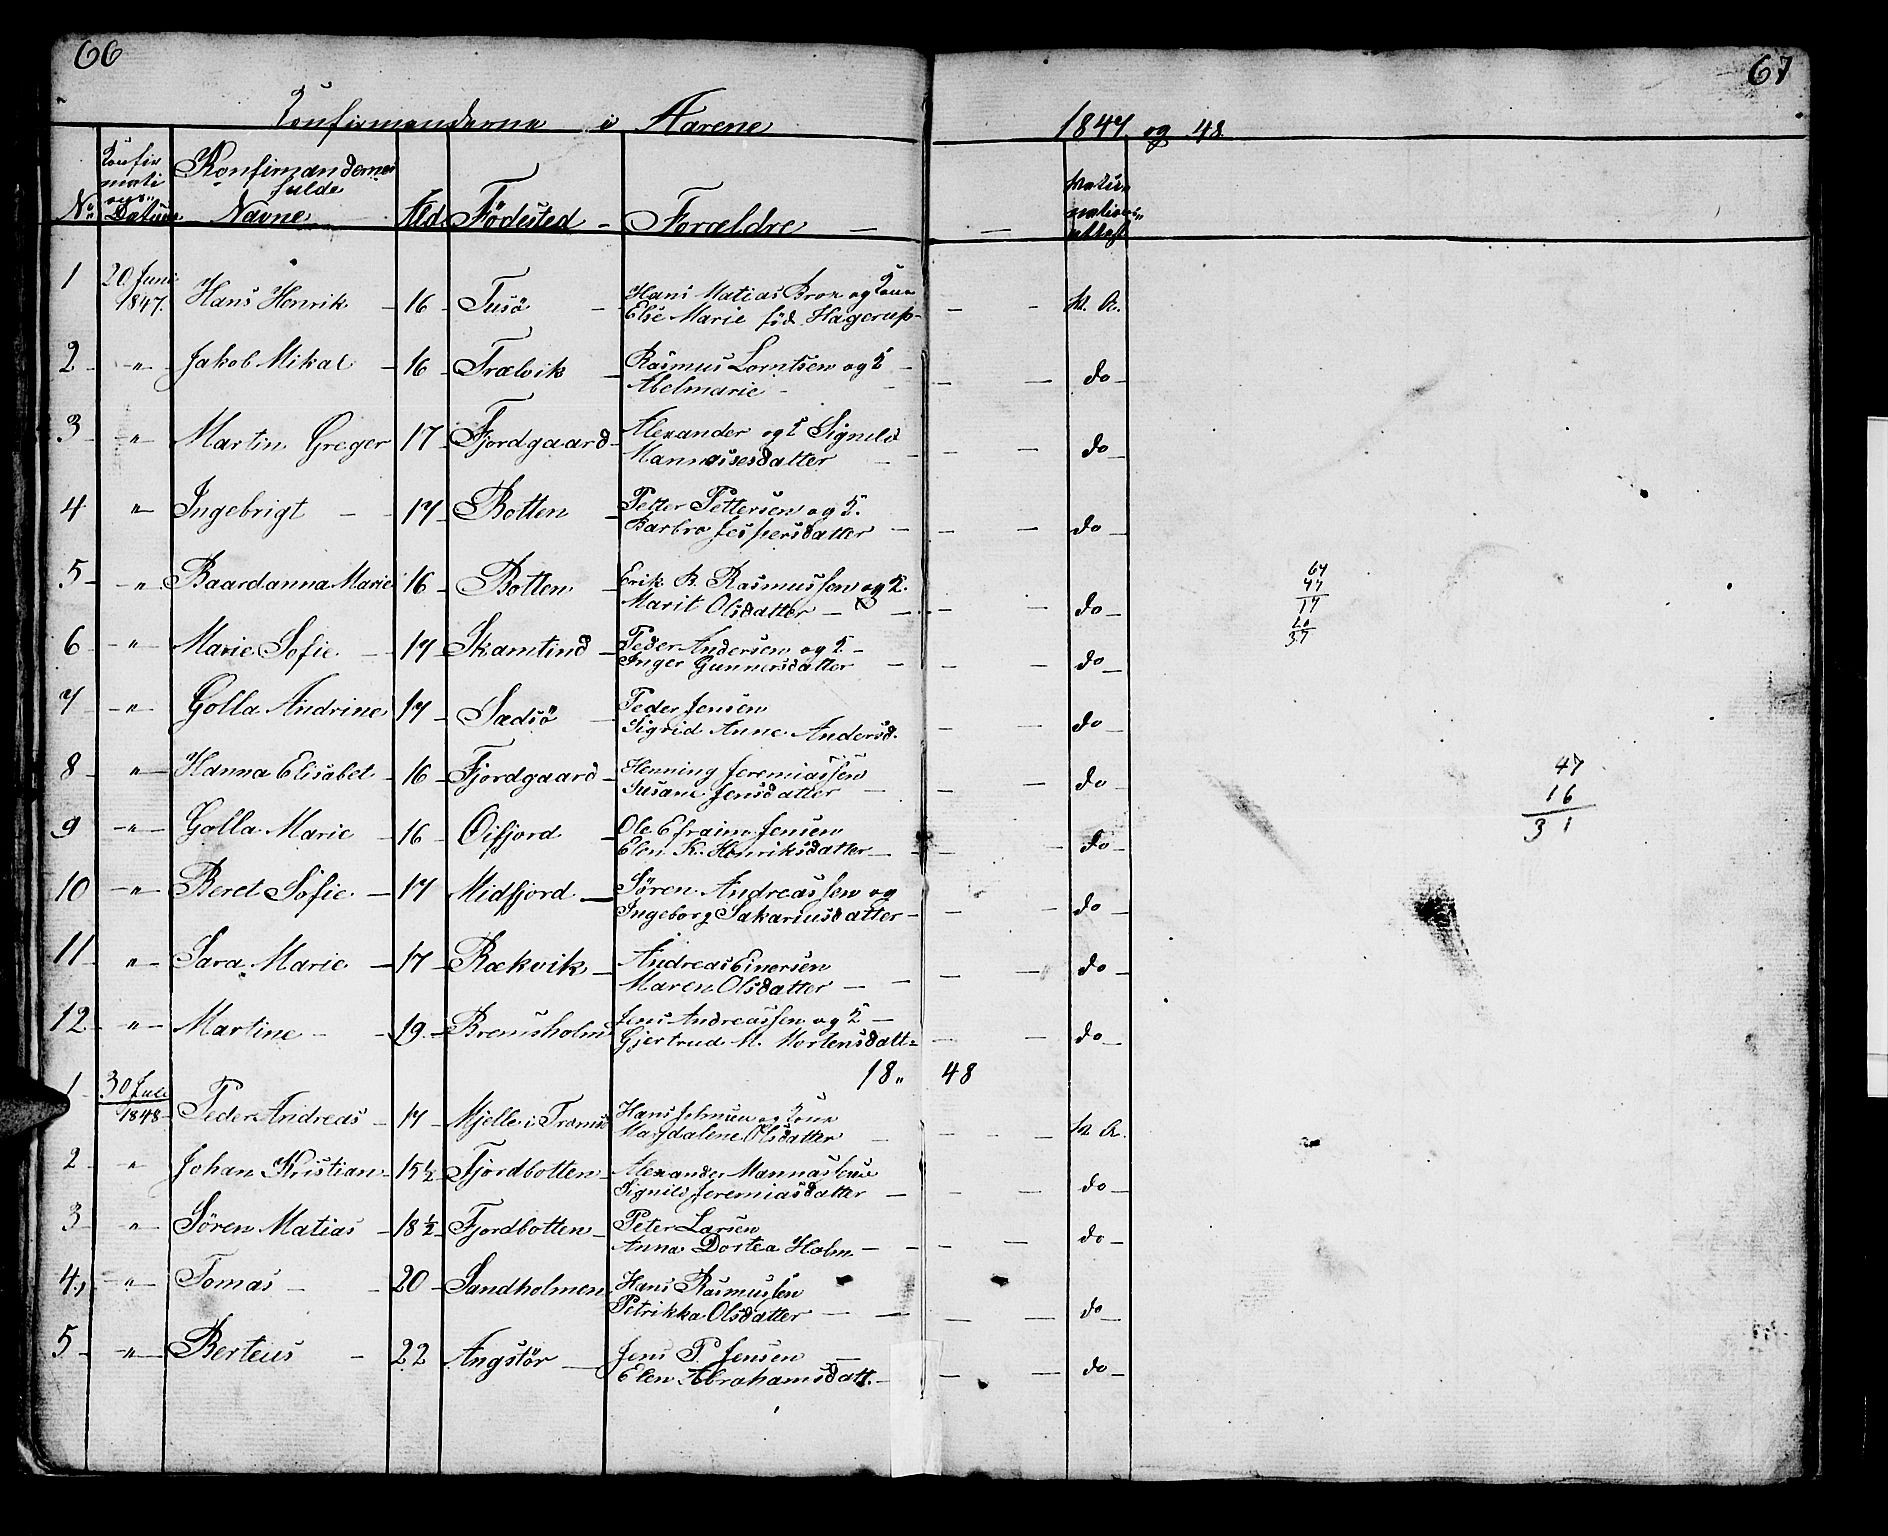 66
67
Konfirmanderne i Aarene 1847 og 48
No. Konfirmations Datum Konfirmandernes fulde Navne Ald. Födested - Forældre -
1 20 Juni 1847. Hans Henrik - 16 - Tusö - Hans Matias Bron og Kone
Elise Marie föd Hagerup - - - N. A.
2 - " - Jakob Mikal - 16 - Trælvik - Rasmus Lorntsen og K -
Abelmarie - - - do -
3 - " Martin Greger 17 - Fjordgaard - Alexander og K Signild
Mannasesdatter - - - do
4 " Ingebrigt - - 17 - Botten - Petter Pettersen og K.
Barbro Jespersdatter - - - do
5 - - " Baardanna Marie 16 - Botten - Erik B. Rasmussen og K.
Marit Olsdatter - - - - do -
6 - " - Marie Sofie - 17 - Skamtind - Peder Andersen og K. -
Inger Gunnersdatter - - - do -
7 - " - Golla Andrine 17 - Sædsö - Peder Jensen
Sigrid Anne Andersd. - - do -
8 - " - Hanna Elisabet - 16 - Fjordgaard - Henning Jeremiassen
Susane Jensdatter - - - do -
9 - " - Golla Marie - 16 - Oifjord - Ole Efraim Jensen
Elen K. Henriksdatter - - - do -
10 - " - Beret Sofie - 17 Midfjord - Sören Andreassen og
Ingeborg Sakariusdatter - - - do -
11 - " - Sara Marie - 17 - Rækvik - Andreas Einersen
Maren Olsdatter - - - - do -
12 - " - Martine - - 19 - Bremsholm Jens Andreassen og K -
Gjertrud M. Mortensdatt= - - do -
18 " 48
1 - 30 Juli 1848 - Peder Andreas - 17 - Mjelle i Tromsö Hans Johnsen og Kone
Magdalene Olsdatter - - - - N A.
2 - " Johan Kristian - 15½ - Fjordbotten - Alexander Mannassen
Signild Jeremiasdatter - - - do -
3 - " - Sören Matias - 18½ - Fjordbotten - Peter Larsen
Anna Dortea Holm - - - - do -
4 - " - Tomas - - 20 - Sandholmen Hans Rasmussen
Petrikka Olsdatter - - - - do -
5 - - " - Berteus - 22 Angstör - Jens P. Jensen -
Elen Abrahamsdatt. - - - do -
64
47
17
20
37
47
16
31